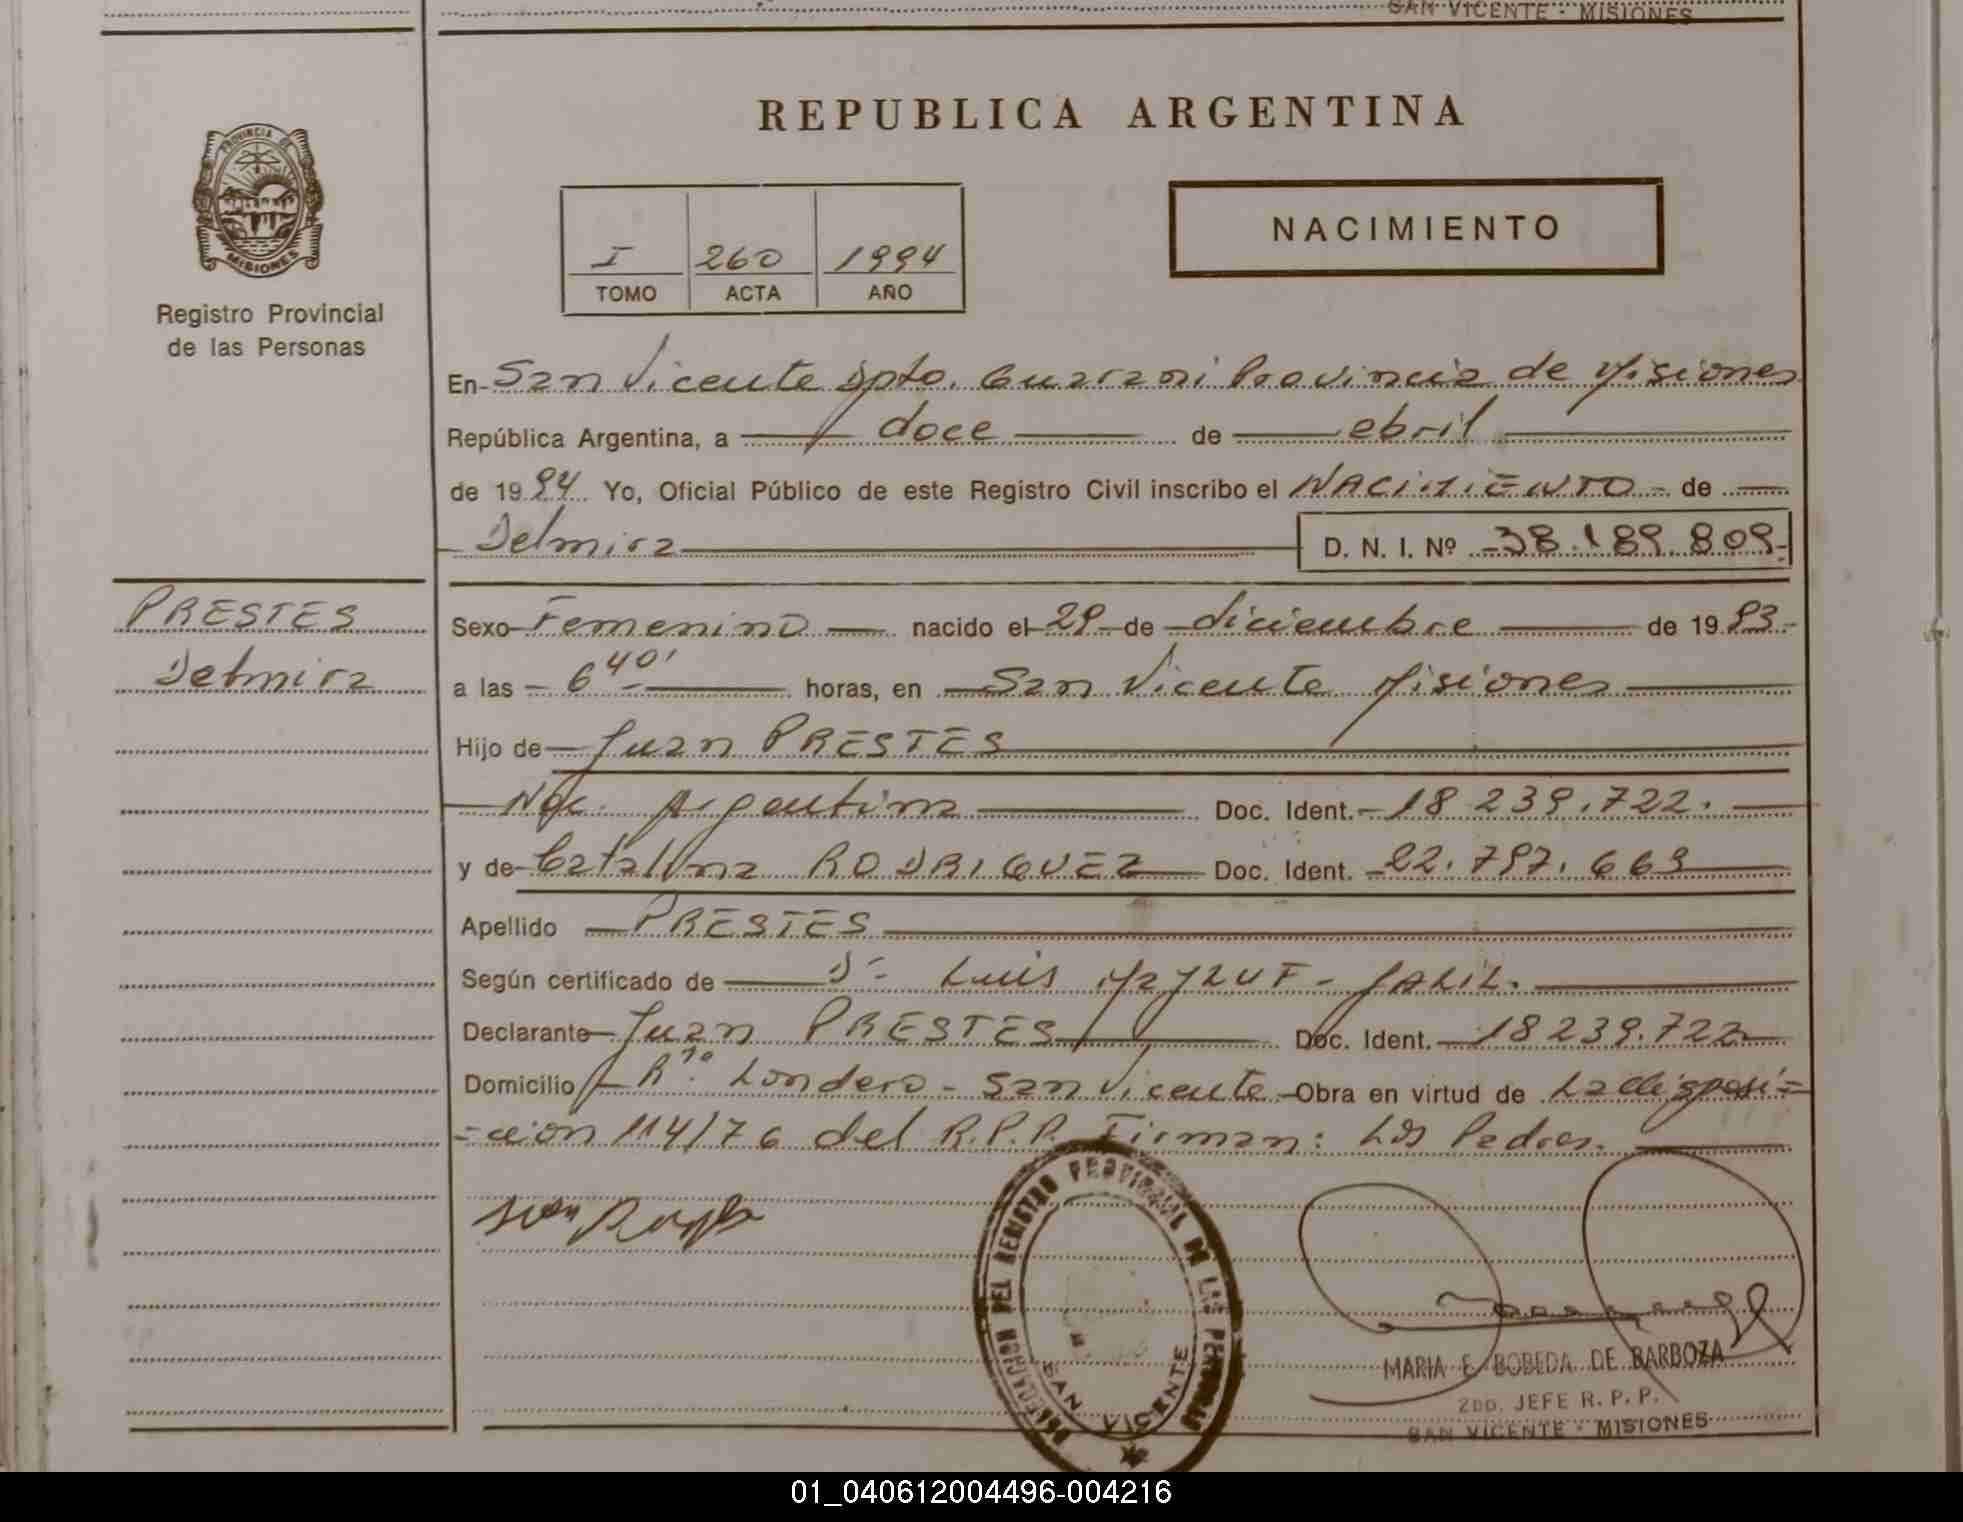 SAN VICENTE - MISIONES
REPUBLICA ARGENTINA
PROVINCIA DE
MISIONES
Registro Provincial
de las Personas
I 260 1994
TOMO ACTA AÑO
NACIMIENTO
En San Vicente Dpto. Guarani Provincia de Misiones
República Argentina, a doce de abril
de 1994 Yo, Oficial Público de este Registro Civil inscribo el NACIMIENTO - de
Delmira D. N. I. Nº 38.189.809-
PRESTES
Delmira
Sexo Femenino nacido el 29 de diciembre de 1993.-
a las 6 40' horas, en San Vicente Misiones
Hijo de Juan PRESTES
Nac. Argentina Doc. Ident. 18 239.722.
y de Catalina RODRIGUEZ Doc. Ident. 22.797.669
Apellido PRESTES
Según certificado de Dr Luis - JALIL.
Declarante Juan PRESTES Doc. Ident. 18 239.722
Domicilio Rto. Londero - San Vicente - Obra en virtud de La disposi=
=cion 114/76 del R.P.P. Firman: Los Padres.
DELEGACION DEL REGISTRO PROVINCIAL DE LAS PERSONAS
SAN VICENTE
MARIA E. BOBEDA DE BARBOZA
2DO. JEFE R. P. P.
SAN VICENTE - MISIONES
01_040612004496-004216